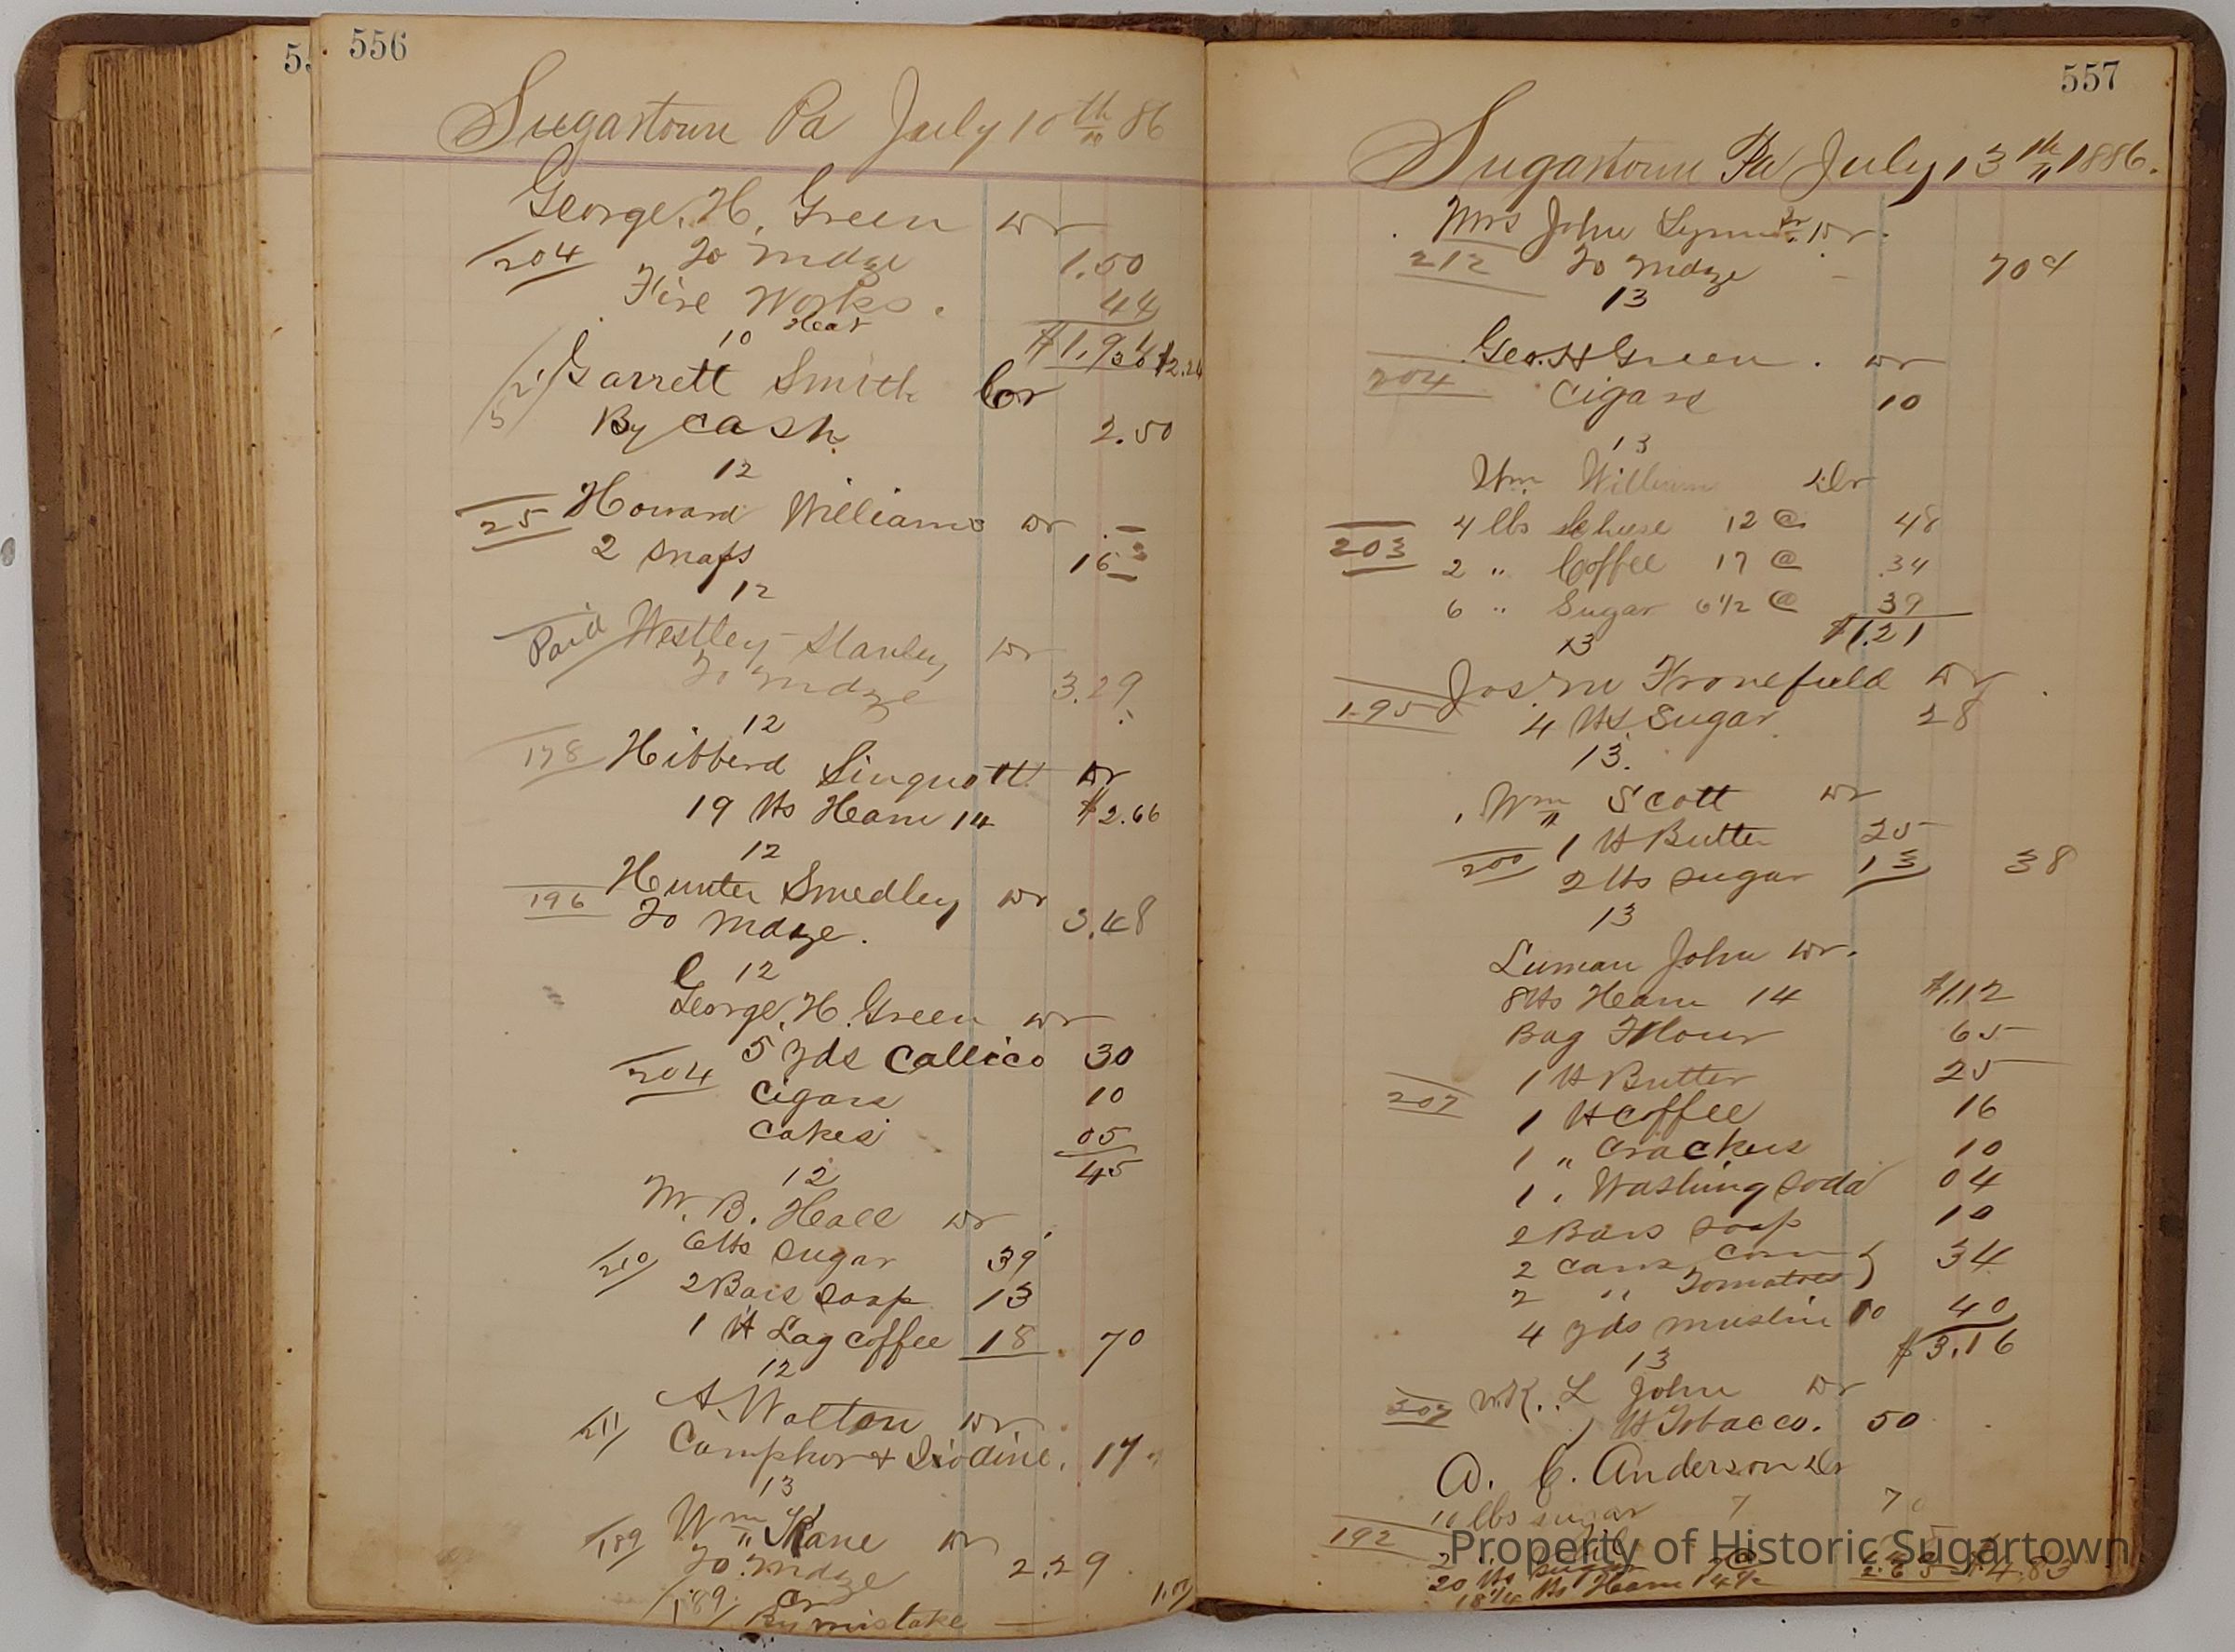 556
Sugartown Pa July 10th 86
George. H. Green Dr
204 To Mdze 1.50
Fire Works. 44
10 $1.94 $2.24
Garrett Smith Cr
By Cash. 2.50
12
25 Howard Williams Dr
2 Snaps 16
12
Paid Westley Stanley Dr
To Mdze 3.29
12
178 Hibberd Linquott Dr
19 lbs Ham 14 $2.66
12
196 Hunter Smedley Dr
To Mdze. 3.48
12
George. H. Green Dr
204 5 yds Callico 30
Cigars 10
Cakes 05
45
12
M. B. Hall Dr
210 6 lbs Sugar 39
2 Bars Soap 13
1 lb Lag Coffee 18 70
12
A. Walton Dr
211 Camphor & Iodine. 17
13
189 Wm Kane Dr
To Mdze 2.29
189 Cr
By mistake
557
Sugartown Pa July 13th 1886.
Mrs John Lynn Dr.
212 To Mdze 70
13
Geo. H Green. Dr
204 Cigars 10
13
Wm William Dr
4 lbs Cheese 12 @ 48
203 2 " Coffee 17 @ .34
6 " Sugar 6 1/2 @ 39
13 $1.21
Jos M Fronefield Dr
195 4 lbs Sugar 28
13.
Wm Scott Dr
1 lb Butter 25
200 2 lbs Sugar 13 38
13
Luman John Dr.
8 lbs Ham 14 $1.12
Bag Flour 65
1 lb Butter 25
207 1 lb Coffee 16
1 " Crackers 10
1 " Washing Soda 04
2 Bars Soap 10
2 Cans Corn } 34
2 " Tomatoes }
4 yds muslin 10 40
13 $3.16
207 L John Dr
1 lb Tobacco. 50
A. C. Anderson Dr
10 lbs sugar 7 70
192
20 lbs Sugar
18 3/4 lbs Ham 14 @ 2.63 $4.83
Property of Historic Sugartown